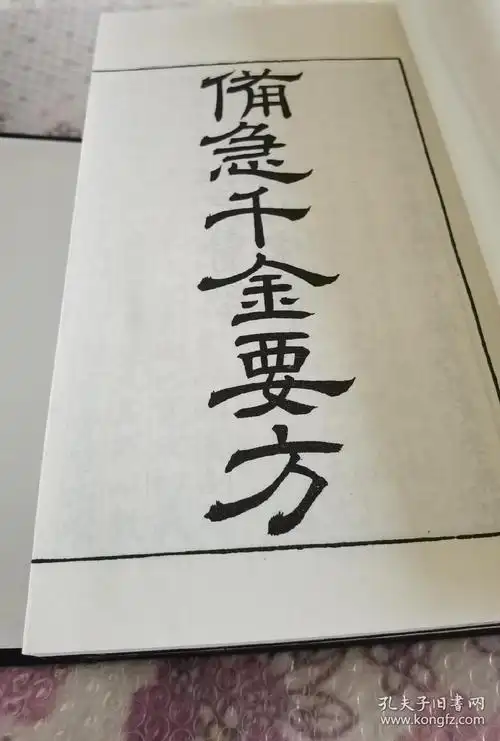 備急千金要方
孔夫子旧书网
www.kongfz.com